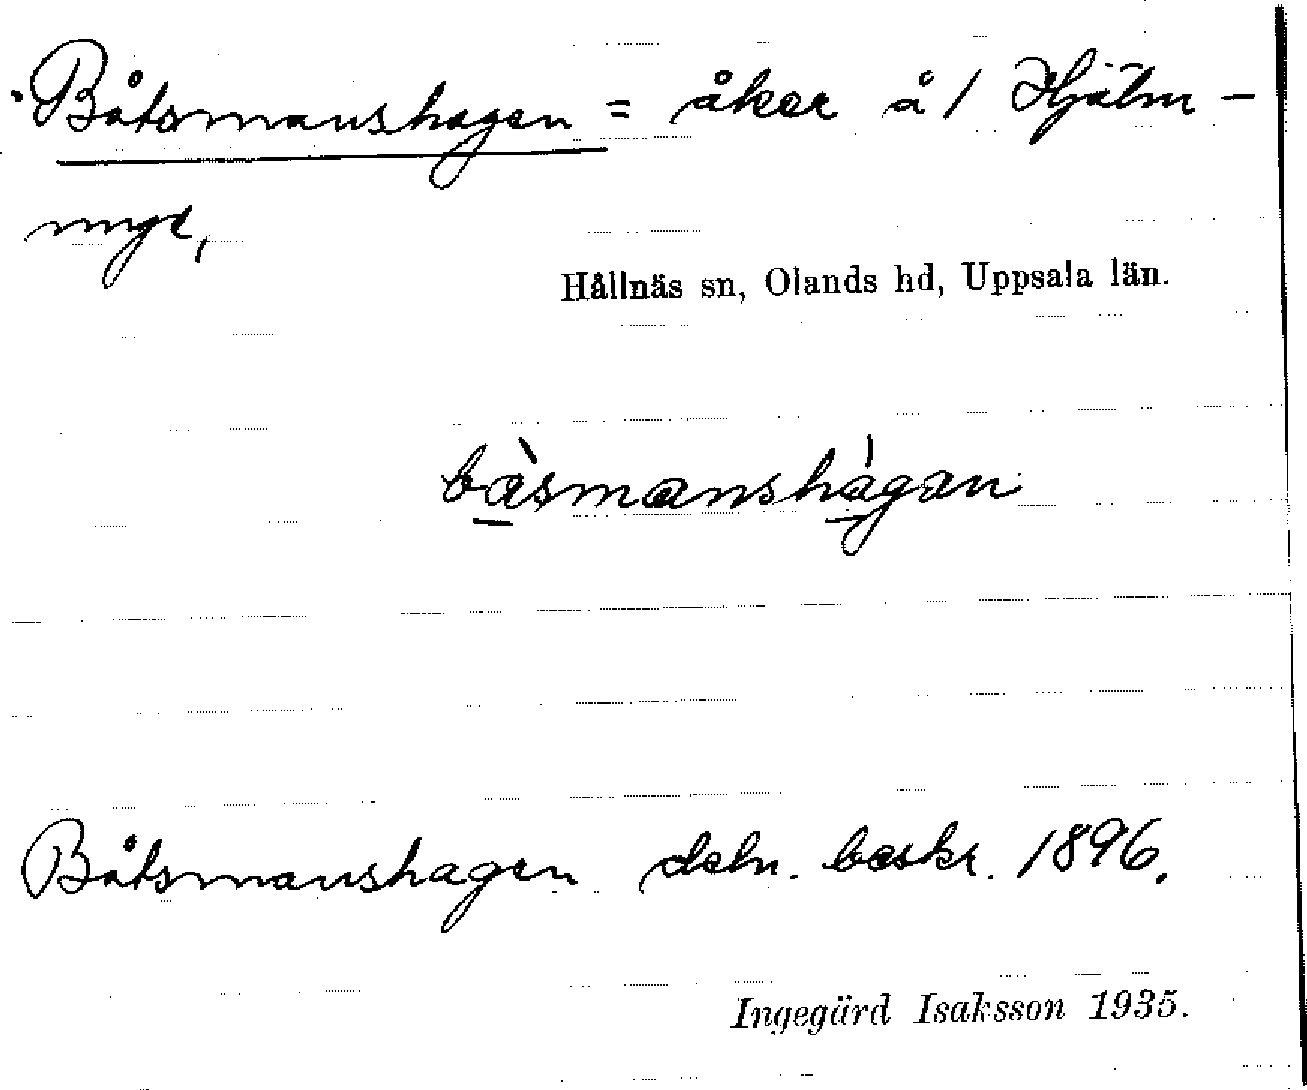 Båtsmanshagen = åker å/ Hjälm-
unge,
Hållnäs sn, Olands hd, Uppsala län.
bàsmanshágan
Båtsmanshagen deln. beskr. 1896.
Ingegärd Isaksson 1935.